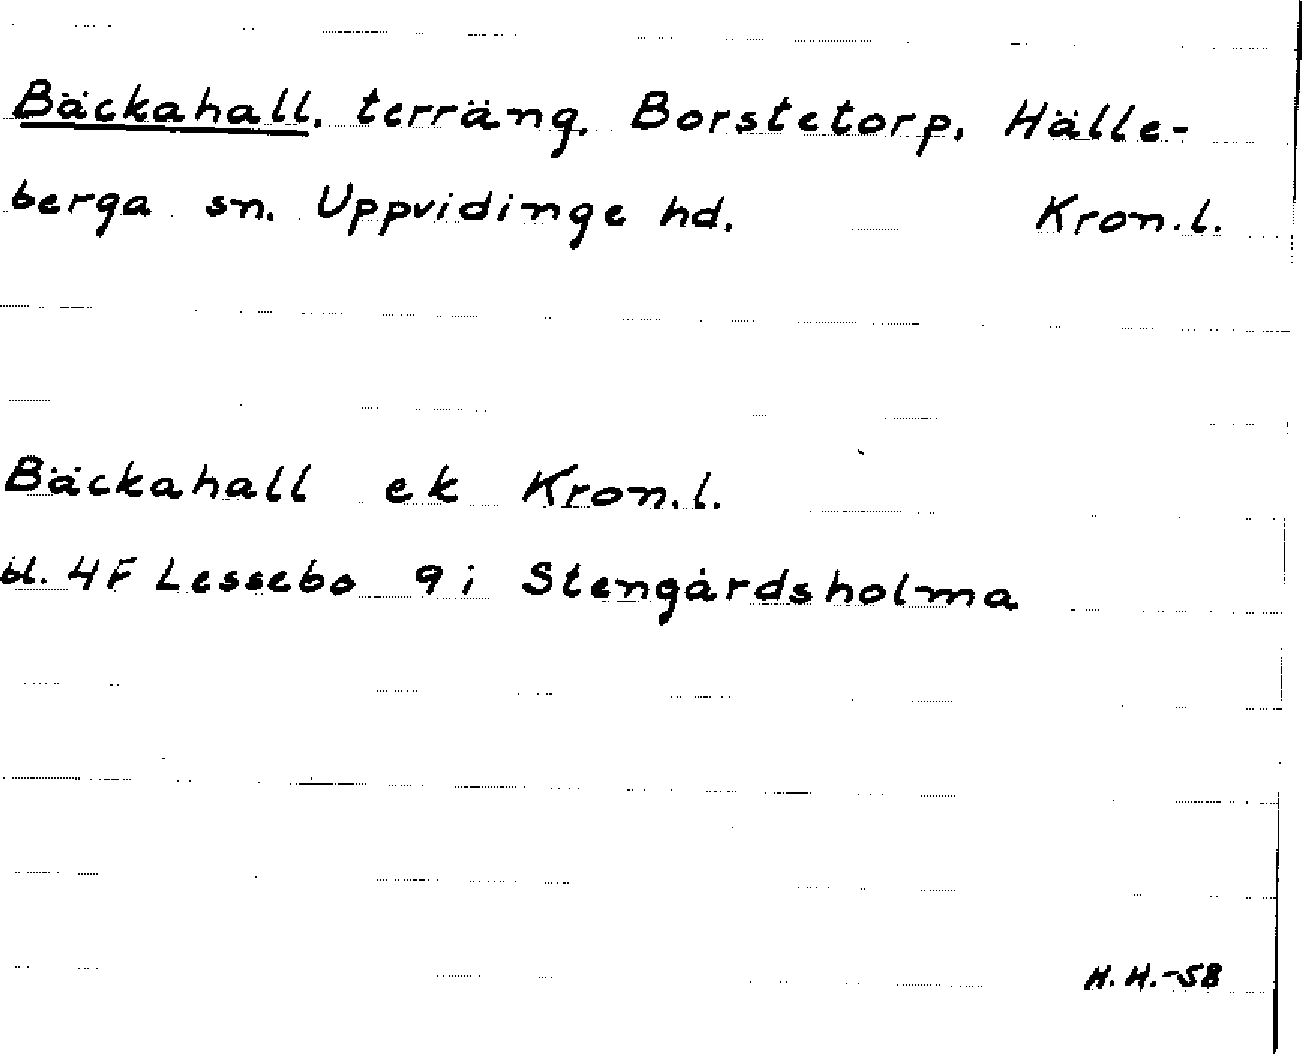 Bäckahall, terräng, Borstetorp, Hälle-
berga sn. Uppvidinge hd. Kron.l.
Bäckahall ek Kron.l.
bl. 4F Lessebo 9i Stengårdsholma
H.H.-58